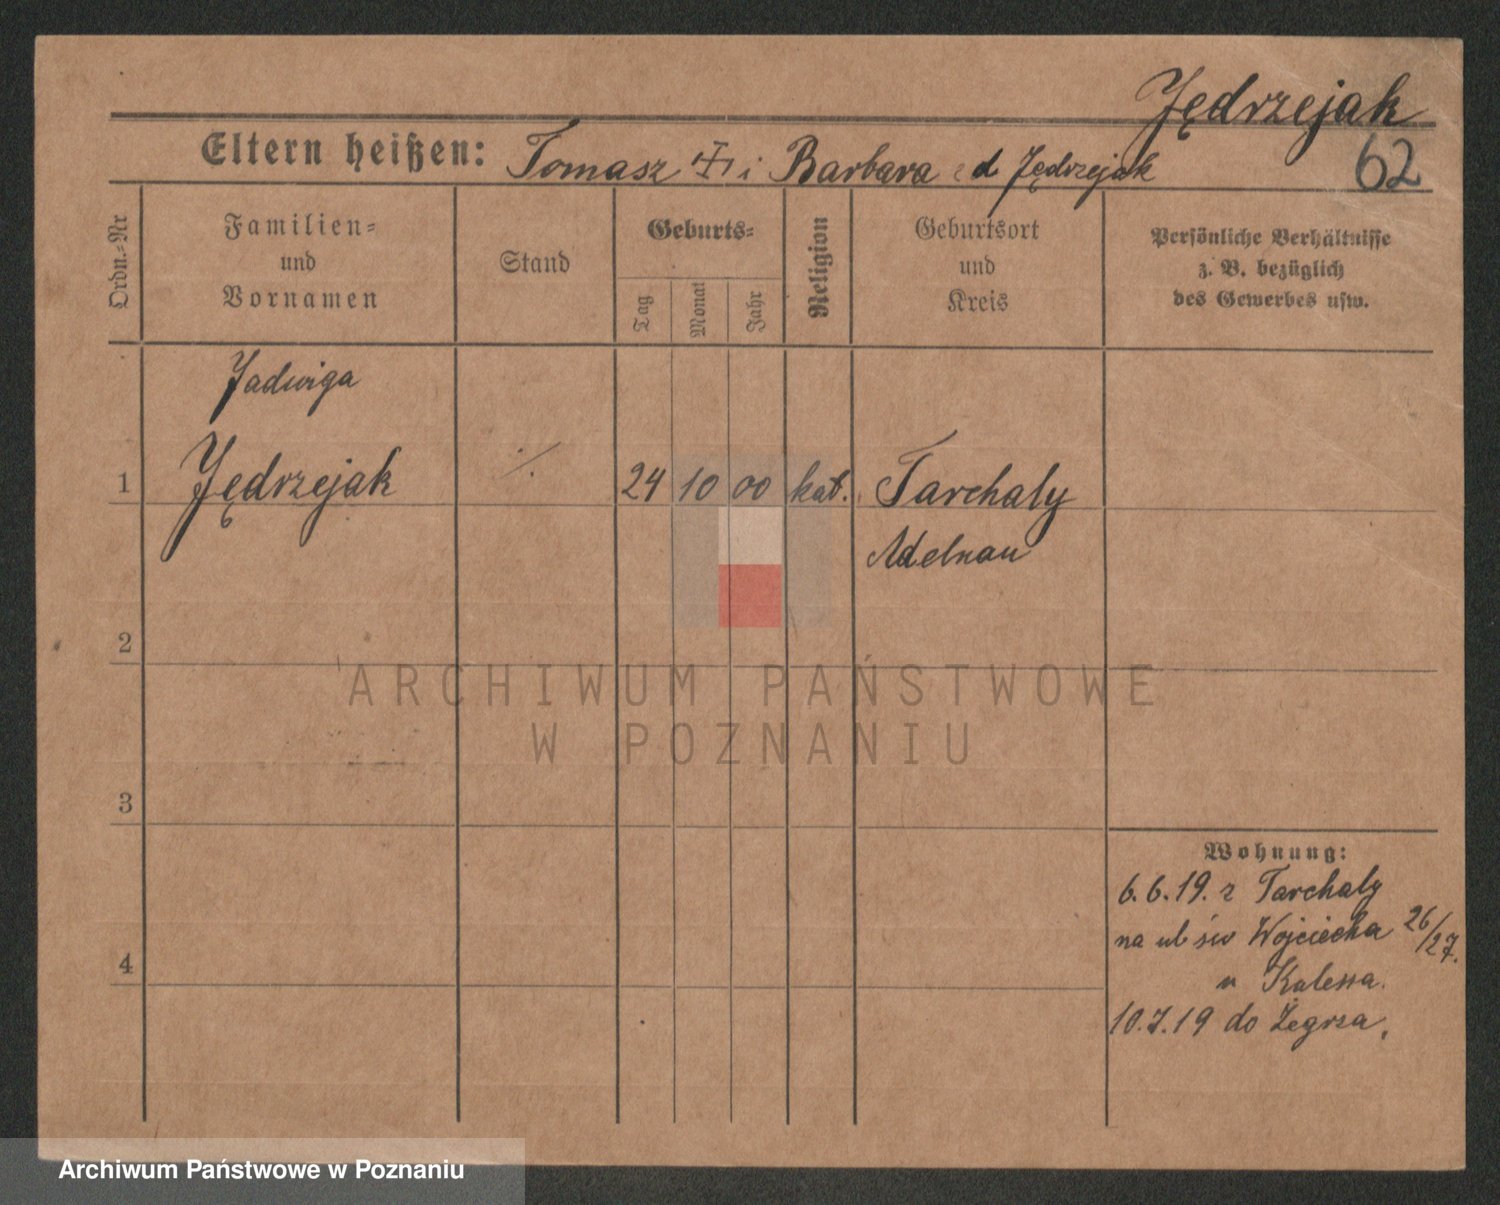 Jędrzejak
62
Eltern heißen: Tomasz i Barbara d Jędrzejak
Ordn.-Nr
Familien-
und
Vornamen
Stand
Geburts-
Tag
Monat
Jahr
Religion
Geburtsort
und
Kreis
Persönliche Verhältnisse
z. B. bezüglich
des Gewerbes usw.
Jadwiga
1 Jędrzejak ./. 24 10 00 kat. Tarchaly
Adelnau
2
3
4
ARCHIWUM PAŃSTWOWE
W POZNANIU
Wohnung:
6.6.19. z Tarchaly
na ul św Wojciecha 26/27.
u
10.7.19 do Żegrza.
Archiwum Państwowe w Poznaniu